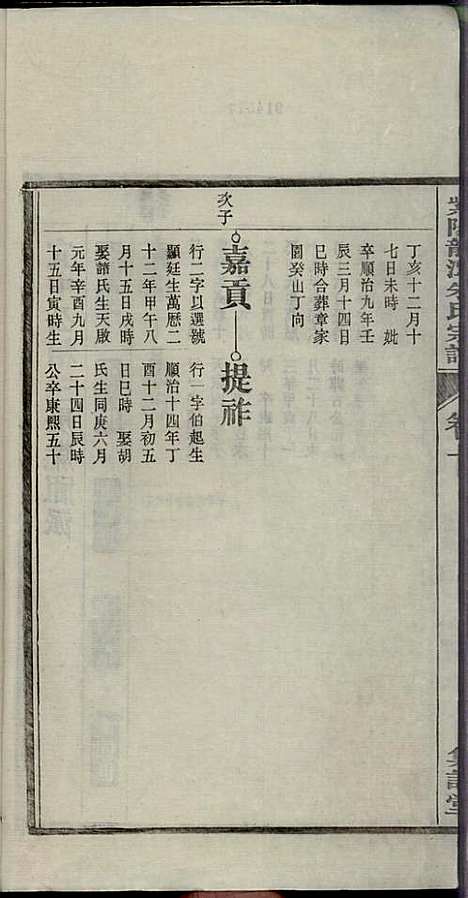 紫陽龍 氏宗譜
卷
丁亥十二月十
七日未時 妣
卒順治九年壬
辰三月十四日
巳時合葬章家
園癸山丁向
次子
嘉貢
行二字以選號
顯廷生萬歷二
十二年甲午八
月十五日戌時
娶諸氏生天啟
元年辛酉九月
十五日寅時生
提祚
行一字伯起生
順治十四年丁
酉十二月初五
日巳時 娶胡
氏生同庚六月
二十四日辰時
公卒康熙五十